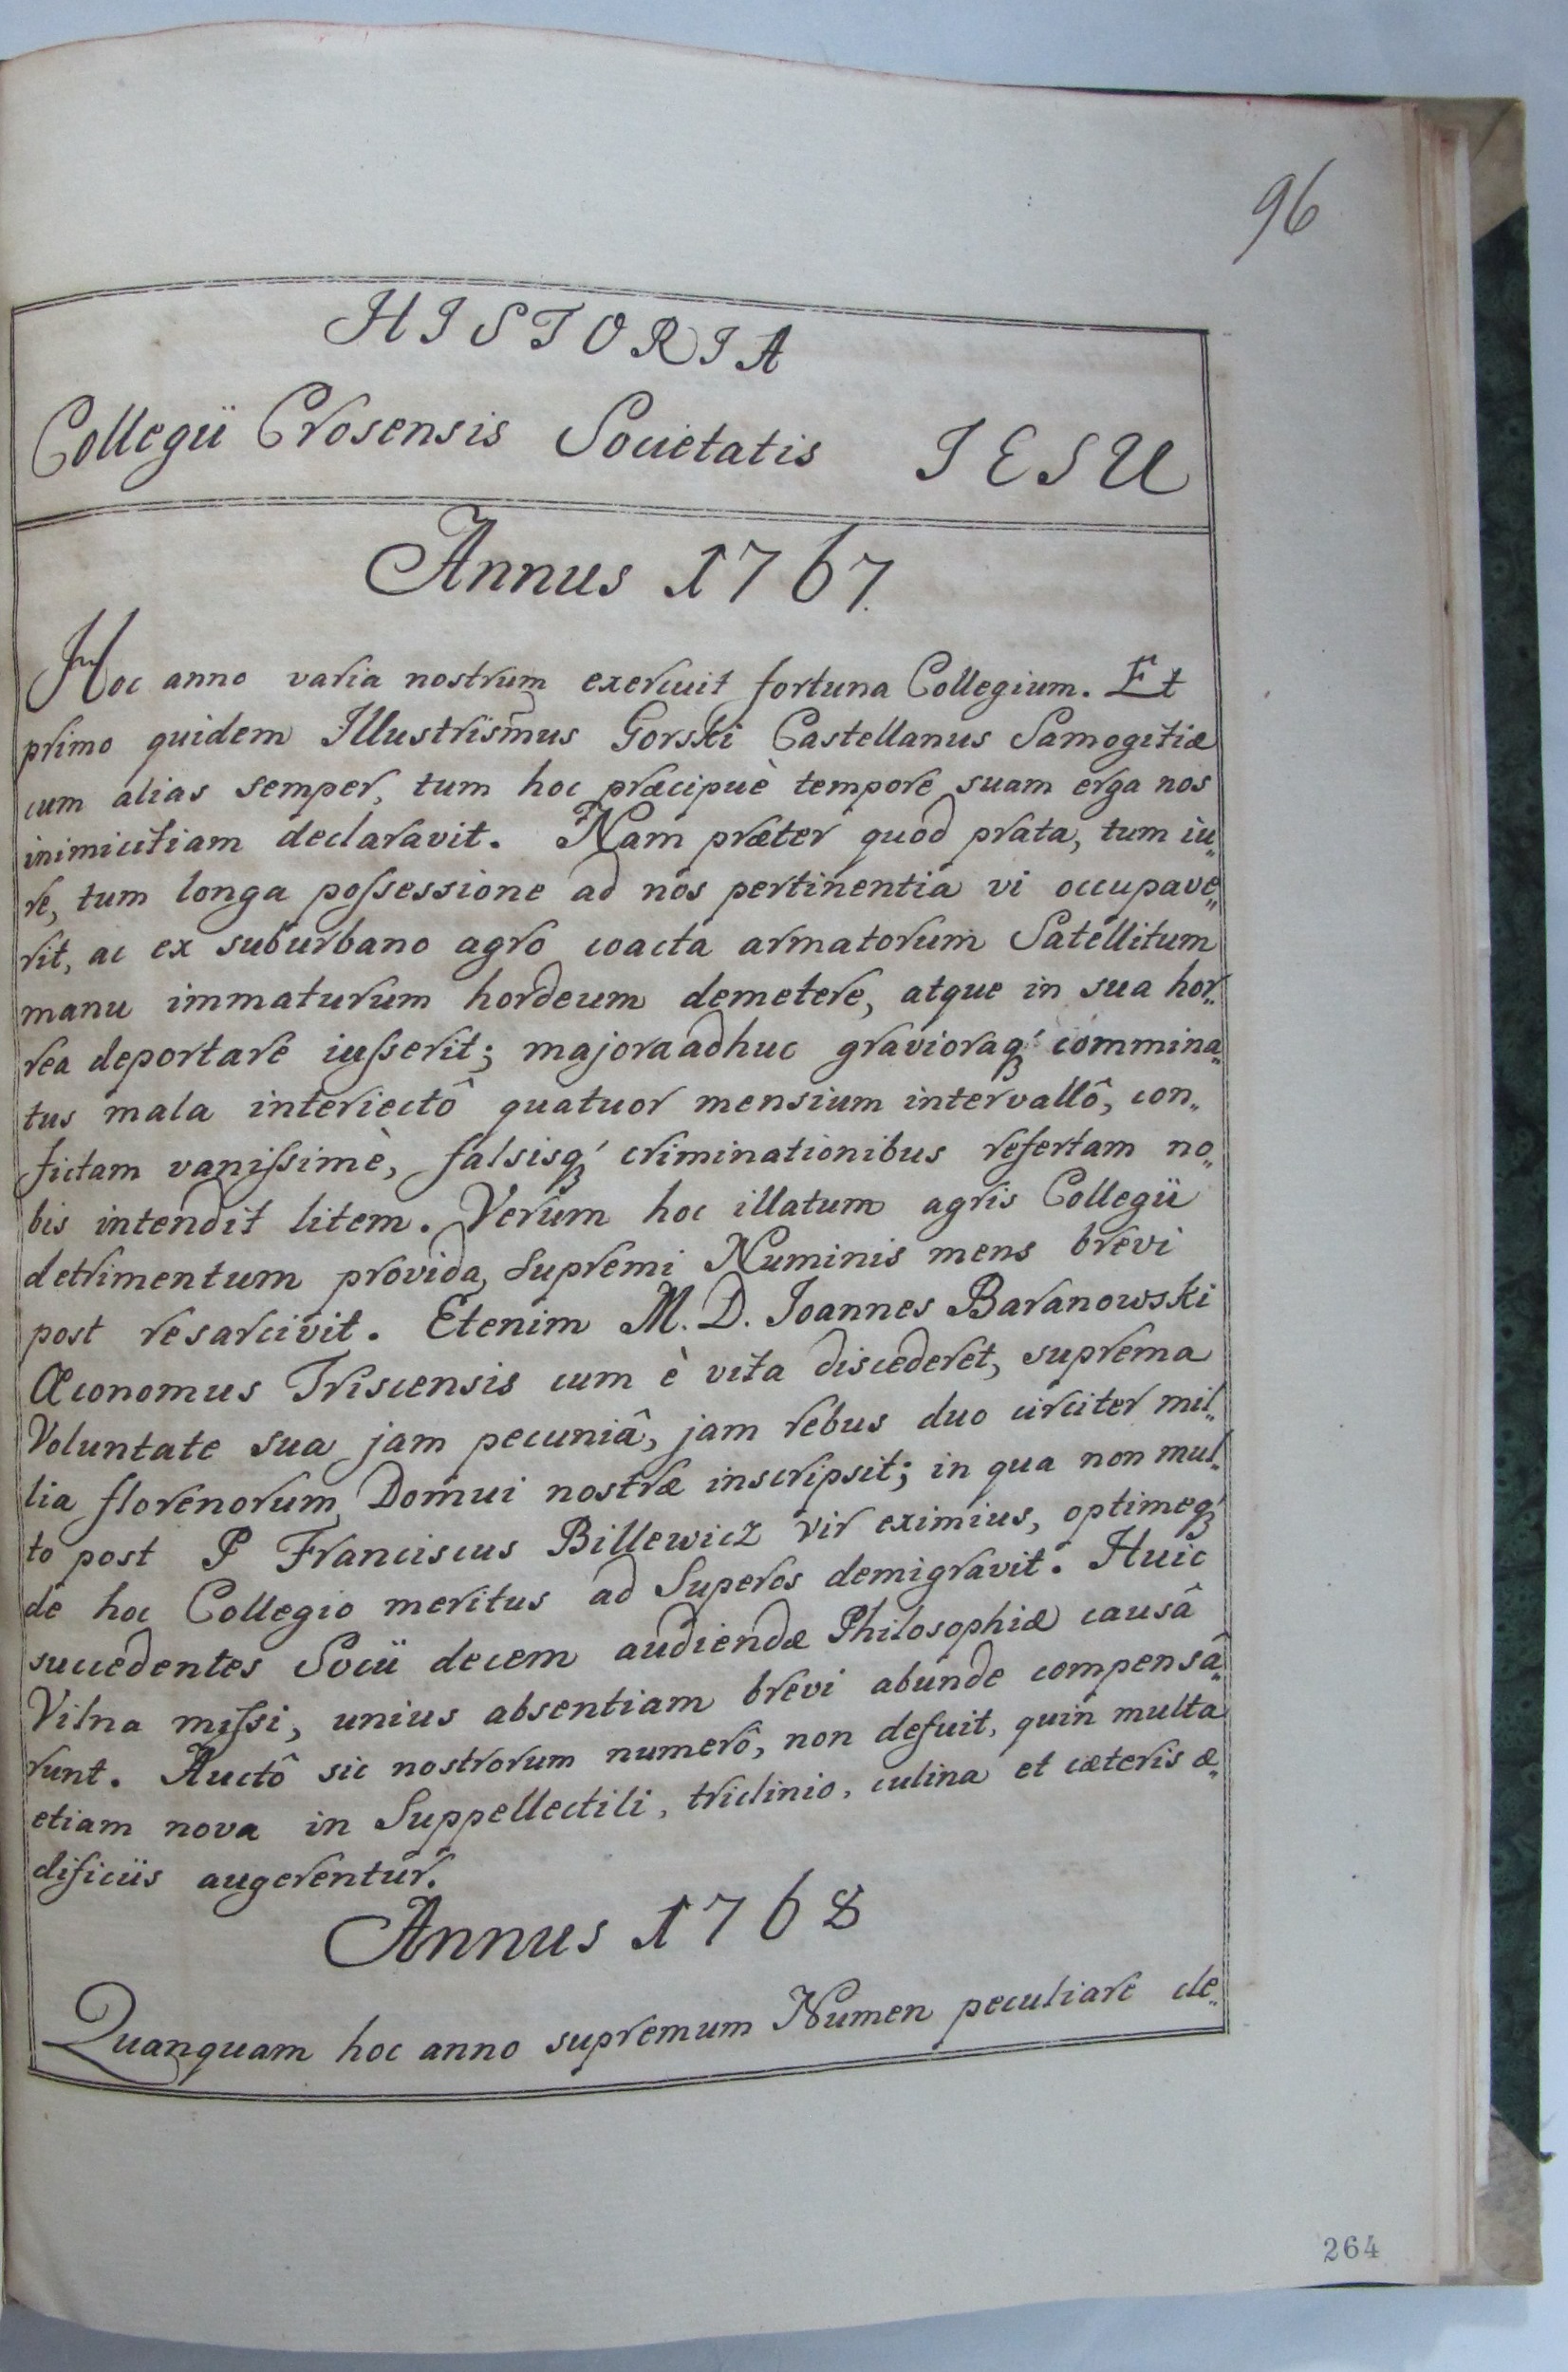 96
HISTORIA
Collegii Crosensis Societatis IESU
Annus 1767.
Hoc anno varia nostrum exercuit fortuna Collegium. Et
primo quidem Illustrismus Gorski Castellanus Samogitiæ
cum alias semper, tum hoc præcipuè tempore suam erga nos
inimicitiam declaravit. Nam præter quod prata, tum iu„
re, tum longa possessione ad nos pertinentia vi occupave„
rit, ac ex suburbano agro coacta armatorum Satellitum
manu immaturum hordeum demetere, atque in sua hor„
rea deportare iusserit; majora adhuc gravioraq́ commina„
tus mala interiectô quatuor mensium intervallô, con„
fictam vanissimè, falsisq́ criminationibus refertam no„
bis intendit litem. Verum hoc illatum agris Collegii
detrimentum provida Supremi Numinis mens brevi
post resarcivit. Etenim M. D. Joannes Baranowski
Œconomus Triscensis cum è vita discederet, suprema
Voluntate sua jam pecuniâ, jam rebus duo circiter mil„
lia florenorum Domui nostræ inscripsit; in qua non mul„
to post P Franciscus Billewicz vir eximius, optimeq́
de hoc Collegio meritus ad Superos demigravit. Huic
succedentes Socii decem audiendæ Philosophiæ causâ
Vilna missi, unius absentiam brevi abunde compensâ„
runt. Auctô sic nostrorum numerô, non defuit, quin multa
etiam nova in Suppellectili, triclinio, culina et cæteris æ„
dificiis augerentur.
Annus 1768
Quanquam hoc anno supremum Numen peculiare de„
264